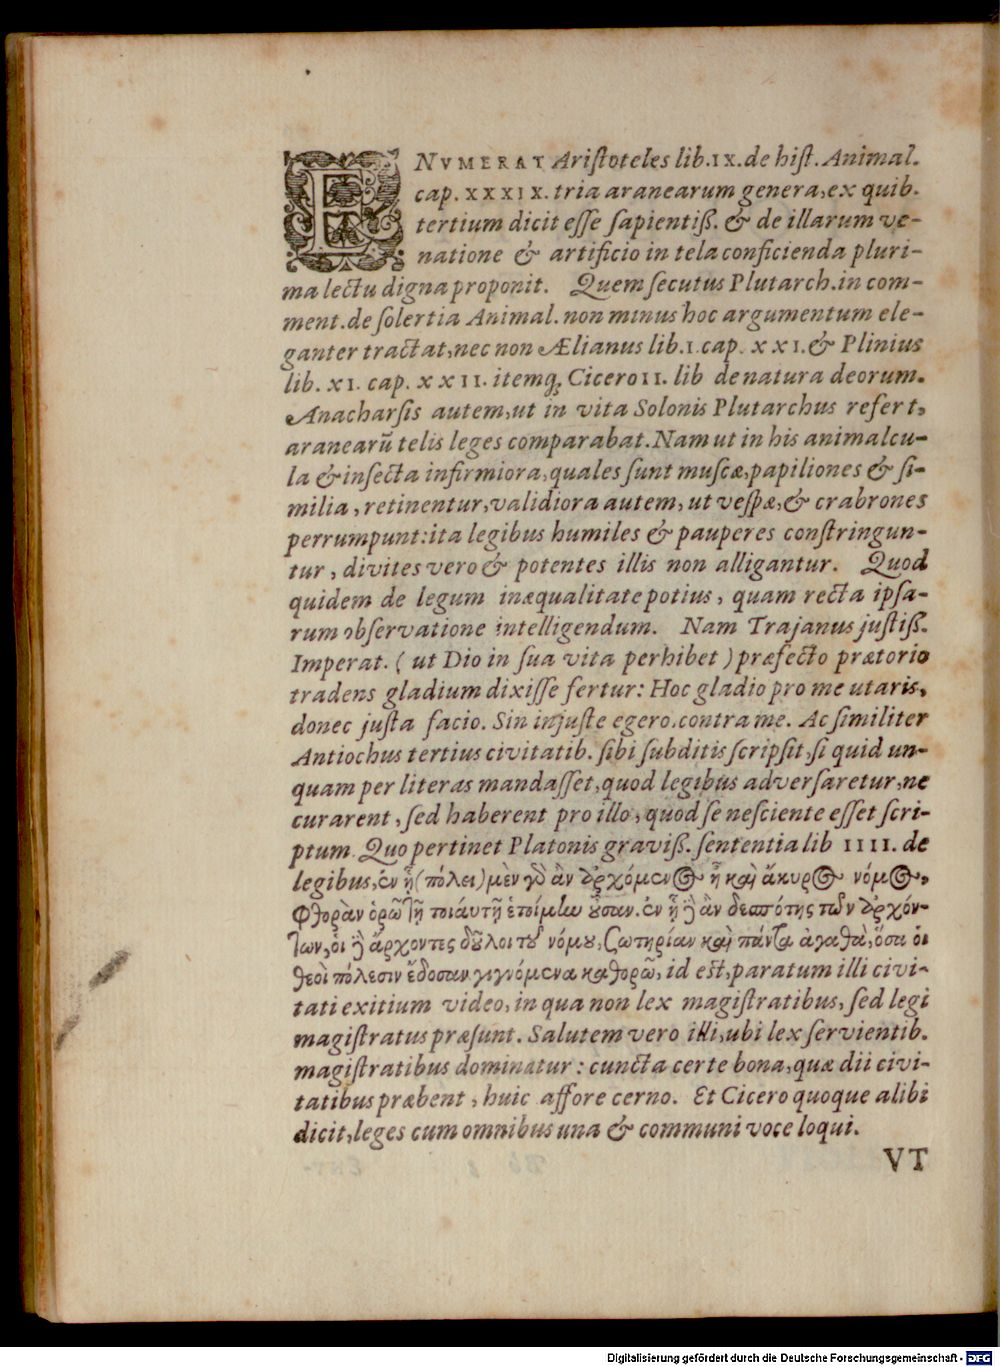 ENVMERAT Ariſtoteles lib.IX.de hiſt. Animal.
cap. XXXIX. tria aranearum genera, ex quib.
tertium dicit eſſe ſapientiß. & de illarum ve-
natione & artificio in tela conficienda pluri-
ma lectu digna proponit. Quem ſecutus Plutarch. in com-
ment. de ſolertia Animal. non minus hoc argumentum ele-
ganter tractat, nec non Ælianus lib.I. cap. XXI. & Plinius
lib. XI. cap. XXII. itemq; Cicero II. lib de natura deorum.
Anacharſis autem, ut in vita Solonis Plutarchus refert,
aranearũ telis leges comparabat. Nam ut in his animalcu-
la & inſecta infirmiora, quales ſunt muſcæ, papiliones & ſi-
milia, retinentur, validiora autem, ut veſpæ, & crabrones
perrumpunt: ita legibus humiles & pauperes conſtringun-
tur, divites vero & potentes illis non alligantur. Quod
quidem de legum inæqualitate potius, quam recta ipſa-
rum obſervatione intelligendum. Nam Trajanus juſtiß.
Imperat. ( ut Dio in ſua vita perhibet ) præfecto prætorio
tradens gladium dixiſſe fertur: Hoc gladio pro me utaris,
donec juſta facio. Sin injuſte egero, contra me. Ac ſimiliter
Antiochus tertius civitatib. ſibi ſubditis ſcripſit, ſi quid un-
quam per literas mandaſſet, quod legibus adverſaretur, ne
curarent, ſed haberent pro illo, quod ſe neſciente eſſet ſcri-
ptum. Quo pertinet Platonis graviß. ſententia lib IIII. de
legibus, ἐν ᾗ (πόλει) μὲν γὸ ἂν ἀρχόμενος ᾖ καὶ ἄκυρος νόμος,
φθορὰν ὁρῶ τῇ τοιάυτῃ ἑτοίμην οὖσαν. ἐν ᾗ ἢ ἂν δεσπότης τῶν ἀρχόν-
των, ὁι ἢ ἄρχοντες δοῦλοι τοῦ νόμου, σωτηρίαν καὶ πάντα ἀγαθὰ, ὅσα ὁι
θεοὶ πόλεσιν ἔδοσαν γιγνόμενα καθορῶ, id eſt, paratum illi civi-
tati exitium video, in qua non lex magiſtratibus, ſed legi
magiſtratus præſunt. Salutem vero illi, ubi lex ſervientib.
magiſtratibus dominatur: cuncta certe bona, quæ dii civi-
tatibus præbent, huic affore cerno. Et Cicero quoque alibi
dicit, leges cum omnibus una & communi voce loqui.
VT
Digitalisierung gefördert durch die Deutsche Forschungsgemeinschaft - DFG